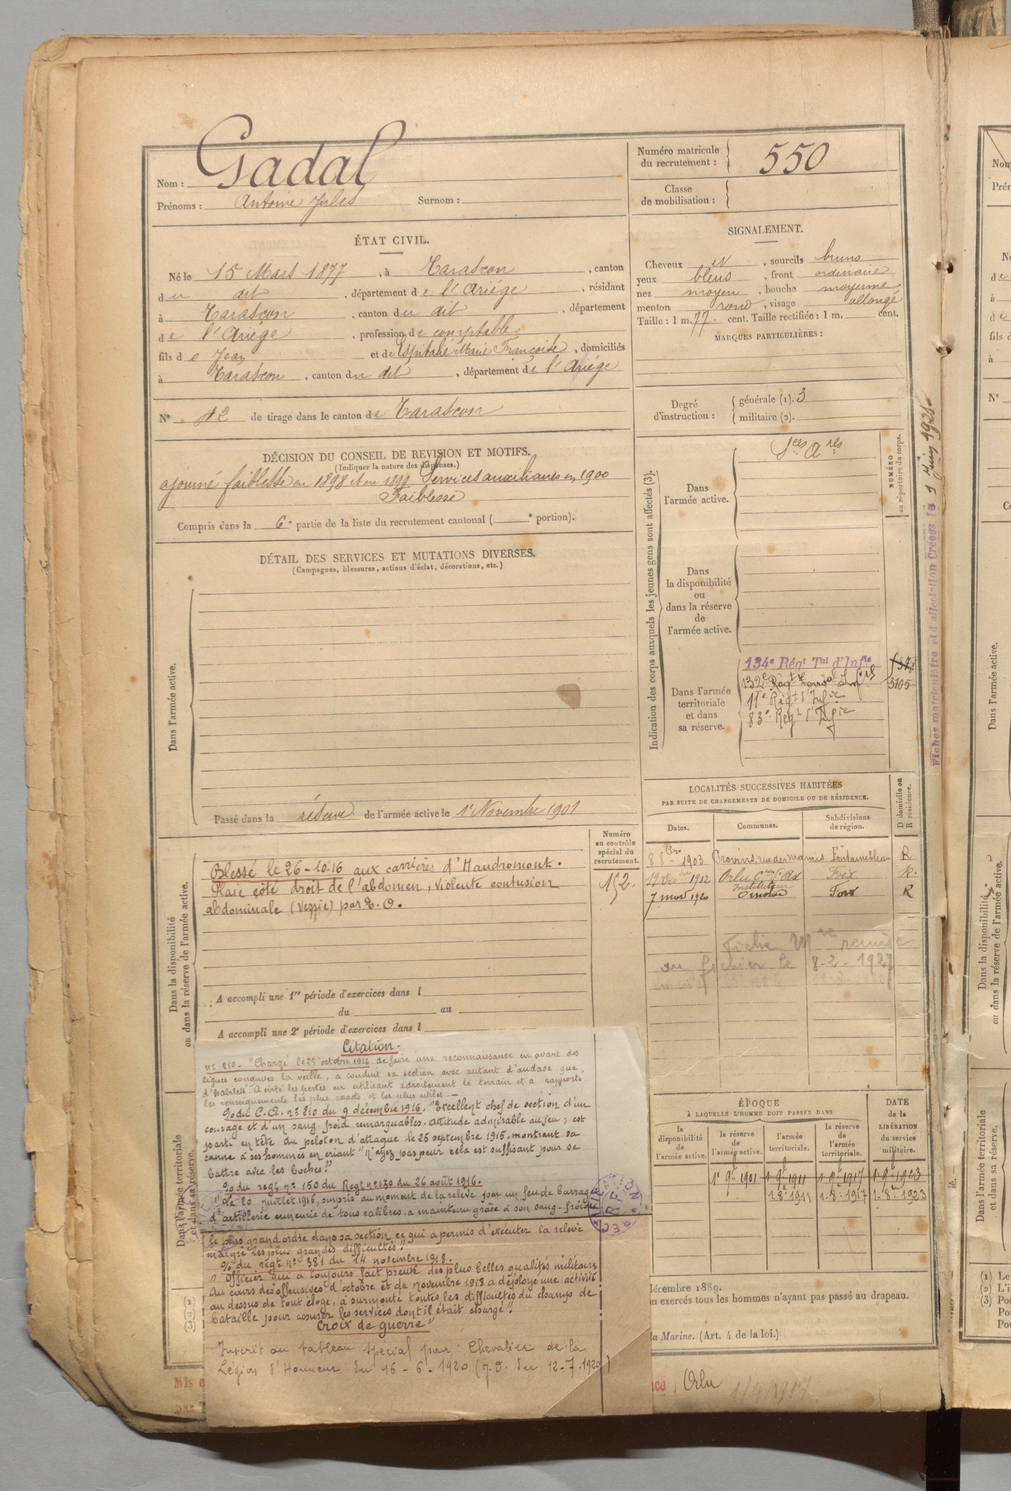 Nom : Gadal
Prénoms : Antoine Jules Surnom :
Numéro matricule du recrutement : 550
Classe de mobilisation :
ÉTAT CIVIL.
Né le 15 Mars 1877, à Tarascon, canton
du dit, département de l'Ariége, résidant
à Tarascon, canton du dit, département
de l'Ariége, profession de comptable
fils de Jean et de Espitalié Marie Françoise, domiciliés
à Tarascon, canton du dit, département de l'Ariége
N° 42 de tirage dans le canton de Tarascon
SIGNALEMENT.
Cheveux et, sourcils bruns
yeux bleus, front ordinaire
nez moyen, bouche moyenne
menton rond, visage allongé
Taille : 1 m. 77 cent. Taille rectifiée : 1 m. cent.
MARQUES PARTICULIÈRES :
Degré d'instruction : générale (1). 3
militaire (2).
DÉCISION DU CONSEIL DE REVISION ET MOTIFS.
(Indiquer la nature des dispenses.)
ajourné faiblesse en 1898 et en 1899 Services auxiliaires en 1900
Faiblesse
Compris dans la 6e partie de la liste du recrutement cantonal ( e portion).
DÉTAIL DES SERVICES ET MUTATIONS DIVERSES.
(Campagnes, blessures, actions d'éclat, décorations, etc.)
Dans l'armée active.
Passé dans la réserve de l'armée active le 1er Novembre 1901
Indication des corps auxquels les jeunes gens sont affectés (3).
NUMÉRO au répertoire du corps.
Dans l'armée active.
Dans la disponibilité ou dans la réserve de l'armée active.
Dans l'armée territoriale et dans sa réserve.
134e Régt Tal d'Infie
11e Régt d'Infie
83e Régt d'Infie
LOCALITÉS SUCCESSIVES HABITÉES
PAR SUITE DE CHANGEMENTS DE DOMICILE OU DE RÉSIDENCE.
Dates. Communes. Subdivisions de région. D domicile ou R résidence.
1903 Provins, Fontainebleau R
1912 Orlu Foix R.
instituteur
7 mars 1920 Foix R
Fiche Mre remise
au fichier le 8-2-1927
Numéro au contrôle spécial du recrutement.
152.
Dans la disponibilité ou dans la réserve de l'armée active.
Blessé le 26-10-16 aux carrières d'Haudromont.
Plaie côté droit de l'abdomen, violente contusion
abdominale (vessie) par E.O.
A accompli une 1re période d'exercices dans l
du au
A accompli une 2e période d'exercices dans l
Dans l'armée territoriale et dans sa réserve.
Citation.
n° 210 - "Chargé le 25 octobre 1916 de faire une reconnaissance en avant des
lignes conquises la veille, a conduit sa section avec autant d'audace que
d'habileté. A évité les pertes en utilisant adroitement le terrain et a rapporté
les renseignements les plus exacts et les plus utiles. -
O/ du C.A. n° 210 du 9 décembre 1916. "Excellent chef de section d'un
courage et d'un sang froid remarquables. attitude admirable au feu ; est
parti en tête du peloton d'attaque le 25 septembre 1915, montrant sa
canne à ses hommes en criant "N'ayez pas peur cela est suffisant pour se
battre avec les boches".
O/ du régt n° 150 du Régt n° 130 du 26 août 1916.
"Le 20 juillet 1916, surpris au moment de la relève par un feu de barrage
d'artillerie ennemie de tous calibres, a maintenu grâce à son sang-froid
le plus grand ordre dans sa section, ce qui a permis d'exécuter la relève
malgré les plus grandes difficultés".
O/ du régt n° 381 du 14 novembre 1918.
"Officier qui a toujours fait preuve des plus belles qualités militaires
Au cours des offensives d'octobre et de novembre 1918 a déployé une activité
au dessus de tout éloge, a surmonté toutes les difficultés du champs de
bataille pour assurer les services dont il était chargé".
Croix de guerre
Inscrit au tableau spécial pour : Chevalier de la
Légion d'Honneur du 16-6-1920 (J.O. du 12-7-1920)
ÉPOQUE
À LAQUELLE L'HOMME DOIT PASSER DANS
DATE de la LIBÉRATION du service militaire.
la disponibilité de l'armée active. la réserve de l'armée active. l'armée territoriale. la réserve de l'armée territoriale.
1901 1911 1917 1923
1-8-1911 1-8-1917 1-8-1923
décembre 1889.
es exercés tous les hommes n'ayant pas passé au drapeau.
la Marine. (Art. 4 de la loi.)
Orlu